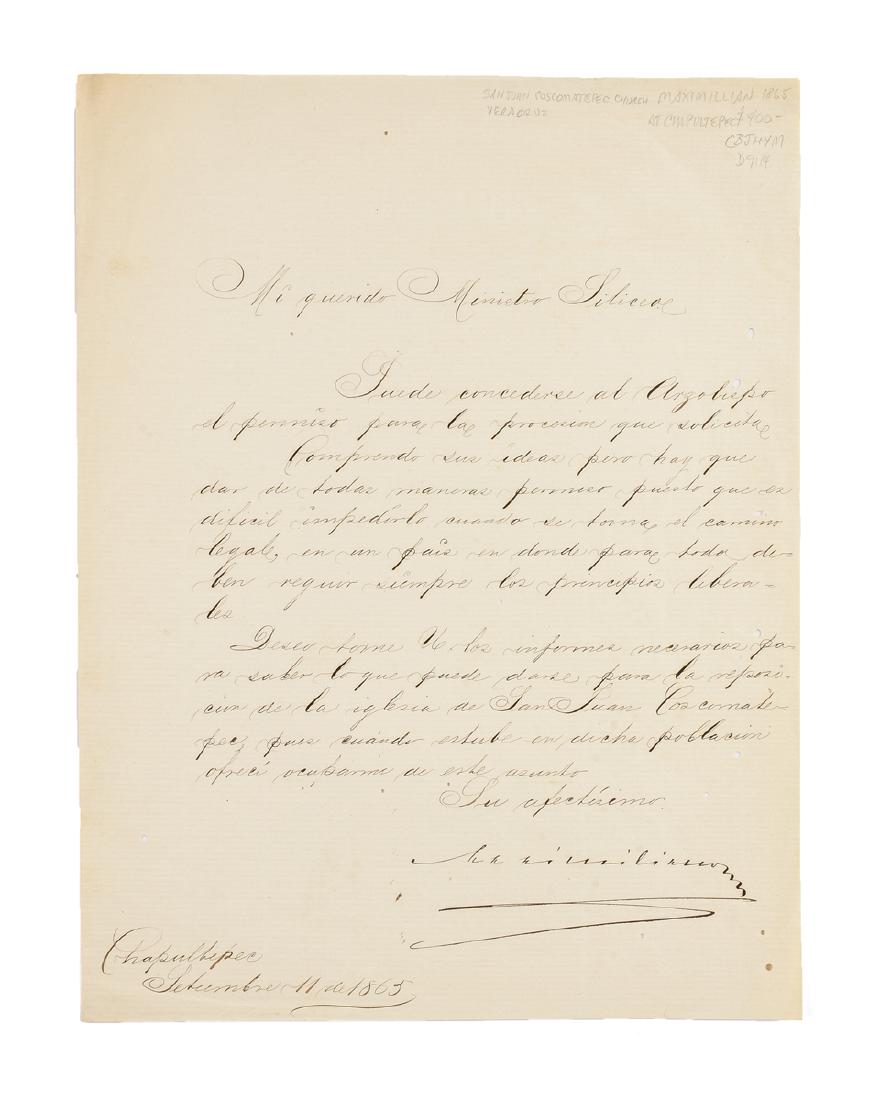 SAN JUAN COSCOMATEPEC CHURCH MAXIMILLIAN 1865
VERACRUZ AT CHAPULTEPEC $400-
CBJHYM
D9114
Mi querido Ministro Siliceo
Puede concederse al Arzobispo
el permiso para la procesion que solicita
Comprendo sus ideas pero hay que
dar de todas maneras permiso puesto que es
dificil impedirlo cuando se toma el camino
legal, en un pais en donde para todo de-
ben reguir siempre los principios libera-
les
Deseo tome U los informes necesarios pa-
ra saber lo que puede darse para la reposi-
cion de la iglesia de San Juan Coscomate-
pec, pues cuando estube en dicha poblacion
ofreci ocuparme de este asunto
Su afectisimo.
Maximiliano
Chapultepec
Setiembre 11 de 1865